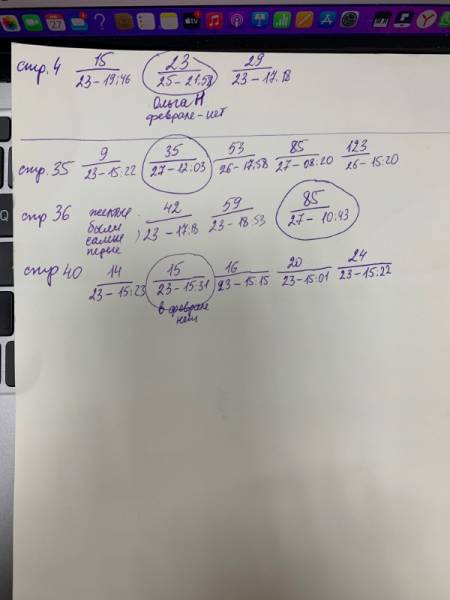 27
tv
стр. 4 15 23 29
23-19:46 25-21:58 23-17:18
Ольга Н
феврале-нет
стр. 35 9 35 53 85 123
23-15:22 27-12:03 26-17:58 27-08:20 26-15:20
стр 36 42 59 85
были 23-17:18 23-18:53 27-10:43
самые
первые
стр 40 14 15 16 20 24
23-15:23 23-15:31 23-15:15 23-15:01 23-15:22
в феврале
нет